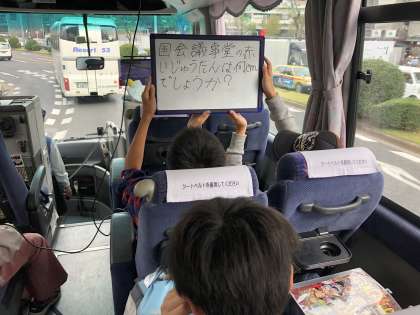 国会議事堂の赤
いじゅうたんは何km
でしょうか?
シートベルトを着用してください
シートベルトを着用してください
53